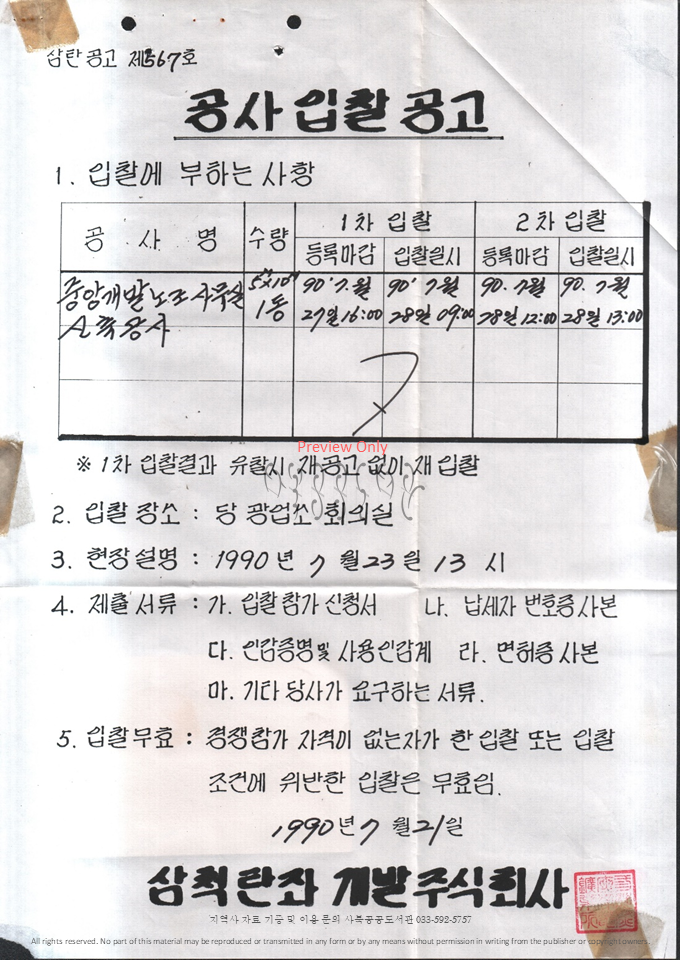 삼탄공고 제567호
공사입찰공고
1. 입찰에 부하는 사항
공사명 수량 1차 입찰 2차 입찰
등록마감 입찰일시 등록마감 입찰일시
중앙개발노조사무실 90'7.월 90'7월 90.7월 90.7월
신축공사 1동 27일16:00 28일09:00 28일12:00 28일13:00
Preview Only
※ 1차 입찰결과 유찰시 재공고없이 재입찰
2. 입찰장소 : 당 광업소 회의실
3. 현장설명 : 1990년 7월23일 13시
4. 제출서류 : 가. 입찰참가신청서 나. 납세자 번호증사본
다. 인감증명및 사용인감계 라. 면허증사본
마. 기타당사가 요구하는 서류.
5. 입찰무효 : 경쟁참가 자격이 없는자가 한 입찰 또는 입찰
조건에 위반한 입찰은 무효임.
1990년 7월21일
삼척탄좌개발주식회사
지역사 자료 기증 및 이용 문의 사북공공도서관 033-592-5757
All rights reserved. No part of this material may be reproduced or transmitted in any form or by any means without permission in writing from the publisher or copyright owners.